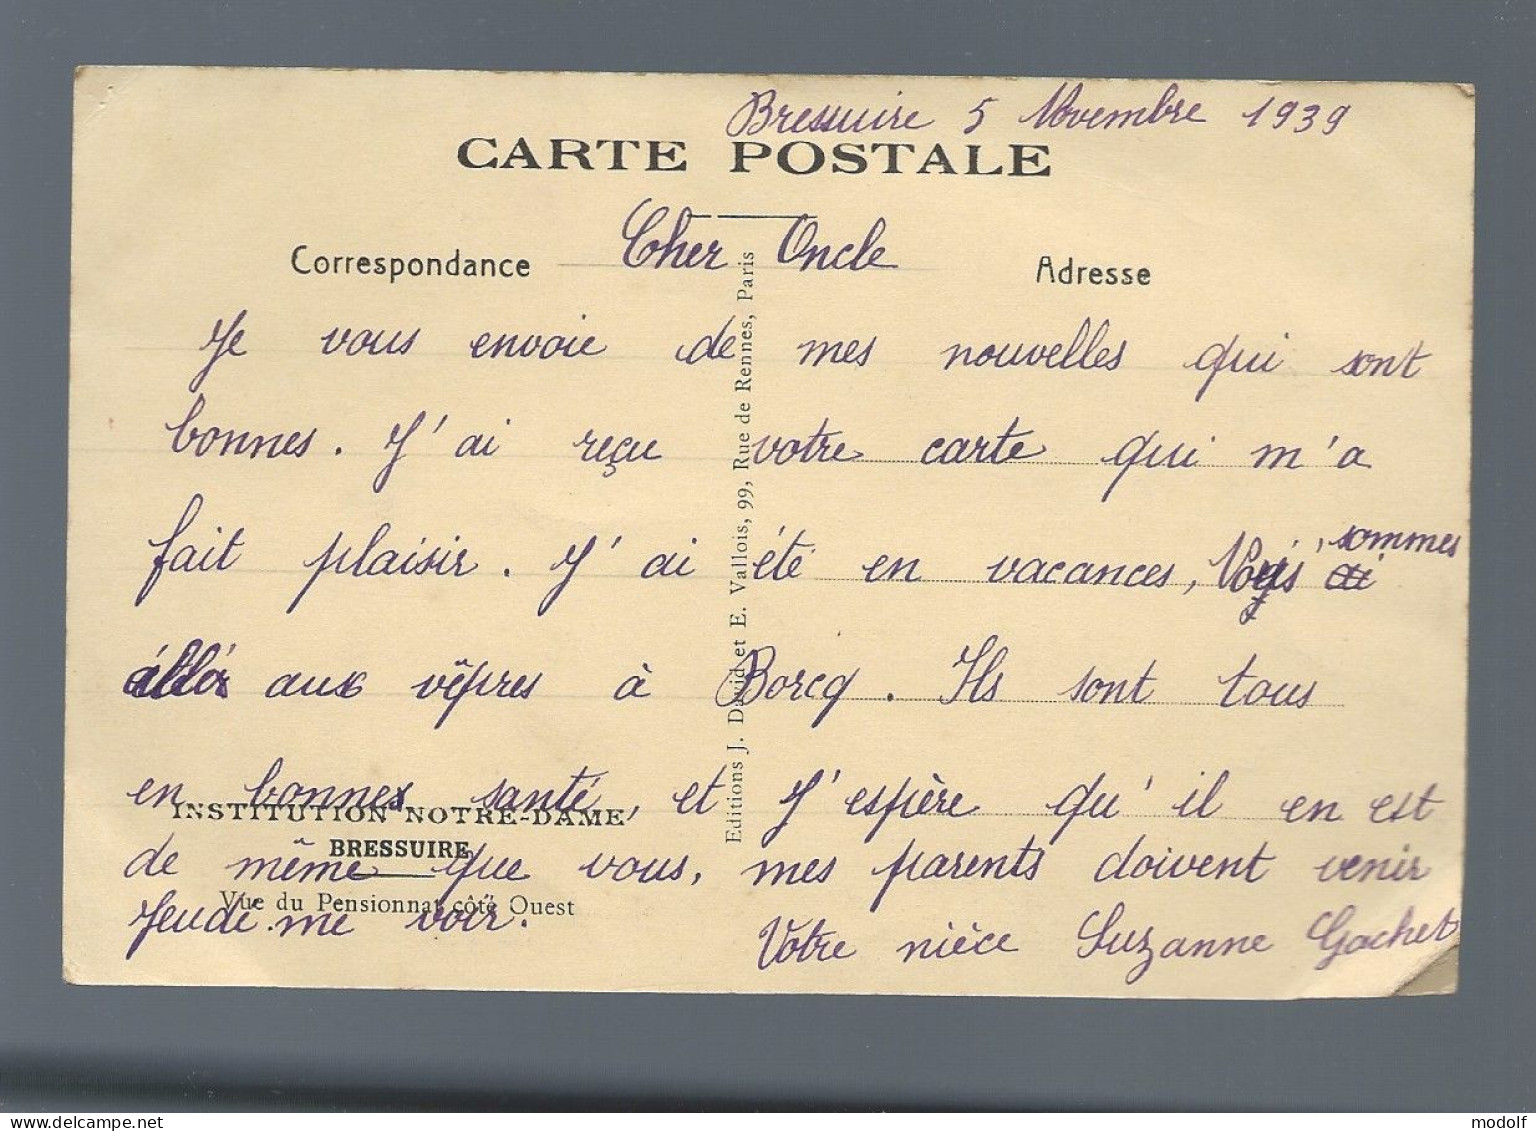 Bressuire 5 Novembre 1939
CARTE POSTALE
Cher Oncle
Correspondance
Adresse
Je vous envoie de mes nouvelles qui sont
bonnes. J'ai reçu votre carte qui m'a
fait plaisir. J'ai été en vacances, sommes
aux vêpres à Borcq. Ils sont tous
en bonnes santé, et J'espère qu'il en est
de même que vous, mes parents doivent venir
Jeudi me voir.
Votre nièce Suzanne Gachet
INSTITUTION NOTRE-DAME
BRESSUIRE
Vue du Pensionnat côté Ouest
Editions J. David et E. Vallois, 99, Rue de Rennes, Paris
modolf